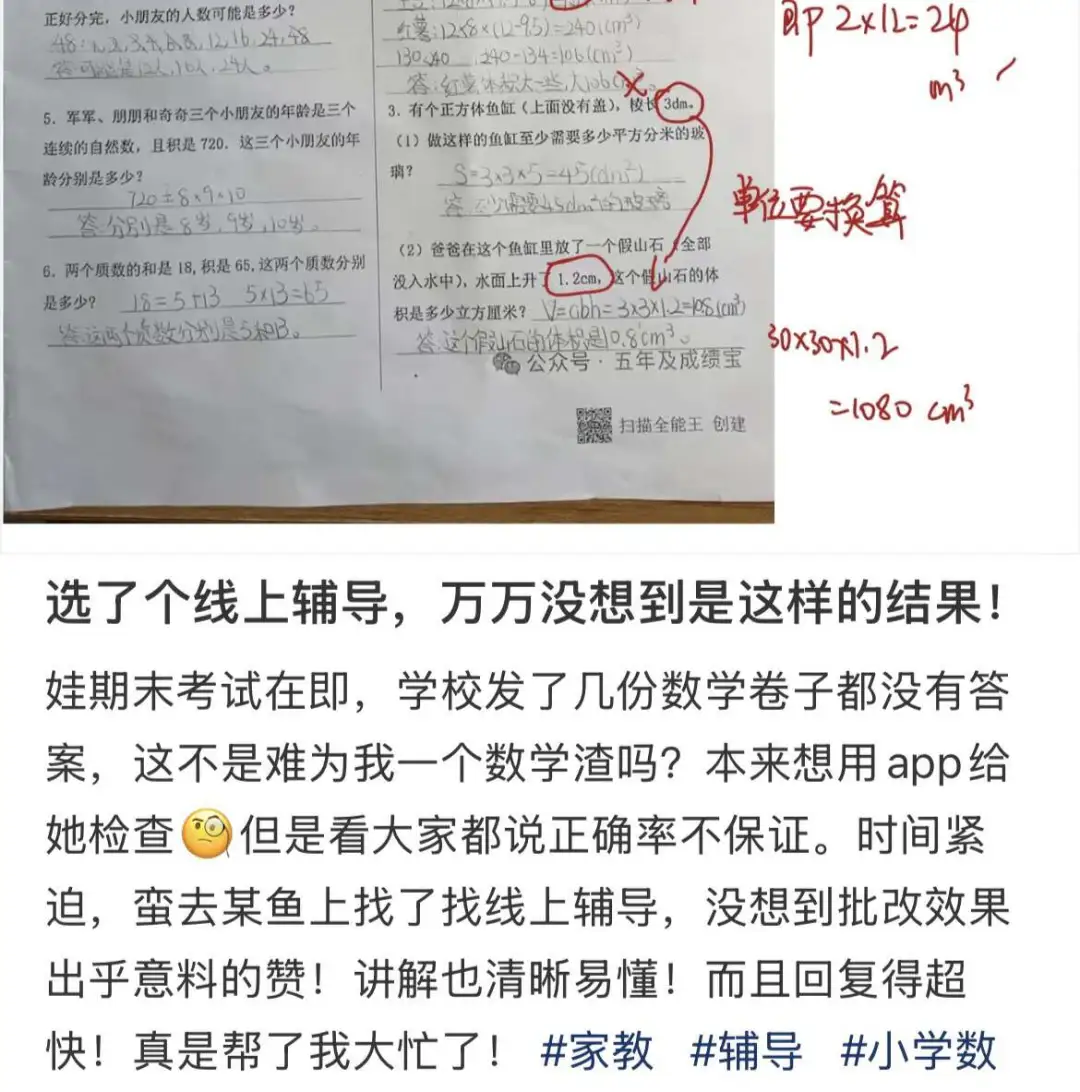 正好分完，小朋友的人数可能是多少？
5．军军、朋朋和奇奇三个小朋友的年龄是三个
连续的自然数，且积是 720．这三个小朋友的年
龄分别是多少？
720=8×9×10
答:分别是8岁,9岁,10岁。
6．两个质数的和是 18，积是 65，这两个质数分别
是多少？ 18=5+13 5×13=65
答:这两个质数分别是5和13。
红薯:12×8×(12-9.5)=240(cm³)
240-134=106(cm³)
3．有个正方体鱼缸（上面没有盖），棱长 3dm。
（1）做这样的鱼缸至少需要多少平方分米的玻
璃？ S=3×3×5=45(dm²)
答:至少需要45dm²的玻璃
（2）爸爸在这个鱼缸里放了一个假山石（全部
没入水中），水面上升了 1.2cm，这个假山石的体
积是多少立方厘米？ V=abh=3×3×1.2=10.8(cm³)
答:这个假山石的体积是10.8cm³。
公众号·五年及成绩宝
扫描全能王 创建
即 2×12=24
m³
单位要换算
30×30×1.2
=1080 cm³
选了个线上辅导，万万没想到是这样的结果！
娃期末考试在即，学校发了几份数学卷子都没有答
案，这不是难为我一个数学渣吗？本来想用app给
她检查🧐但是看大家都说正确率不保证。时间紧
迫，蛮去某鱼上找了找线上辅导，没想到批改效果
出乎意料的赞！讲解也清晰易懂！而且回复得超
快！真是帮了我大忙了！ #家教 #辅导 #小学数